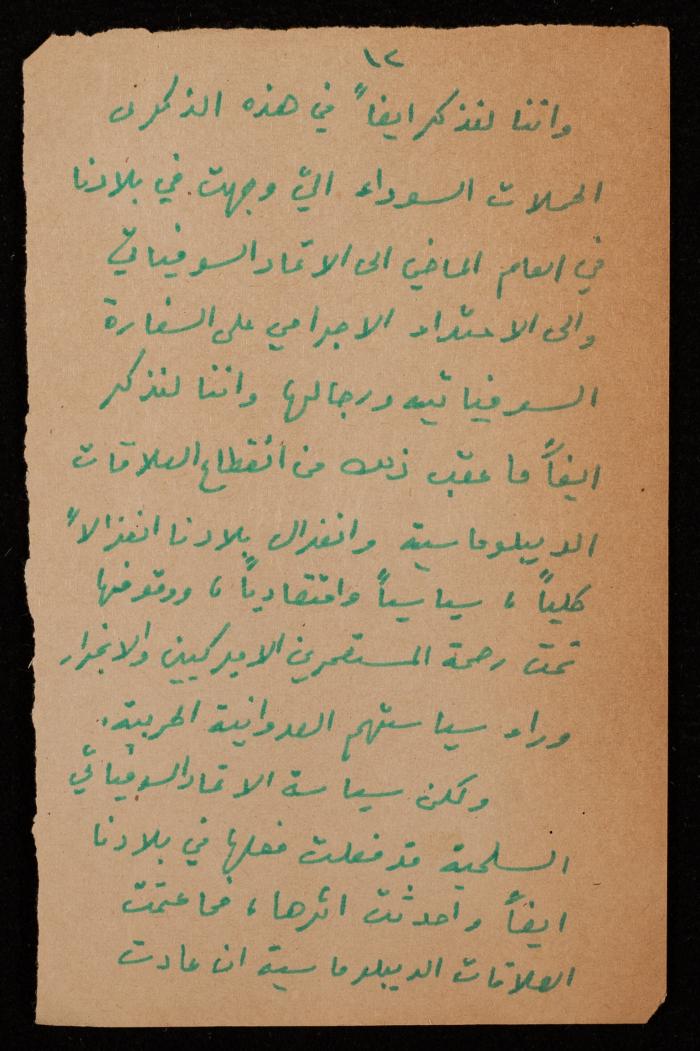 ١٢
واننا لنذكر ايضاً في هذه الذكرى
الحملات السوداء التي وجهت في بلادنا
في العام الماضي الى الاتحاد السوفياتي
والى الاعتداء الاجرامي على السفارة
السوفياتيه ورجالها واننا لنذكر
ايضاً ما عقب ذلك من انقطاع العلاقات
الديبلوماسية وانعزال بلادنا انعزالاً
كلياً، سياسياً واقتصادياً، ووقوفها
تحت رحمة المستعمرين الاميركيين والانجرار
وراء سياستهم العدوانية الحربية.
ولكن سياسة الاتحاد السوفياتي
السلمية قد فعلت فعلها في بلادنا
ايضاً واحدثت اثرها، فما عتمت
العلاقات الديبلوماسية ان عادت